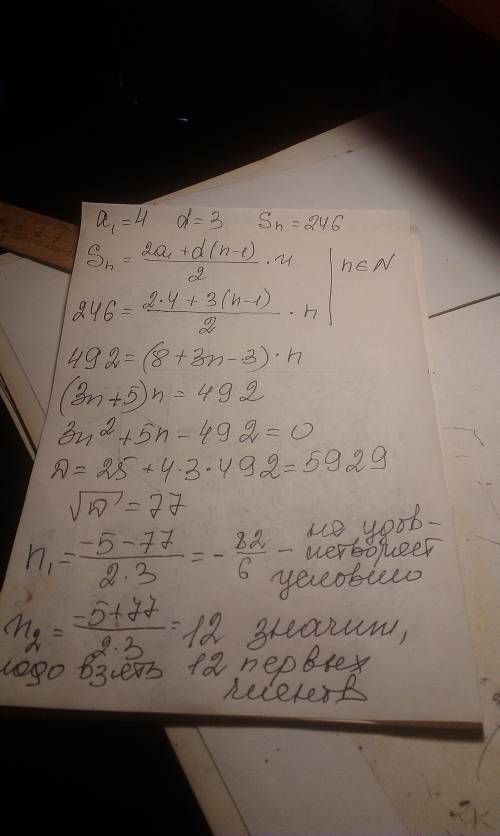 a₁=4 d=3 Sₙ=246
Sₙ = (2a₁+d(n-1))/2 · n | n∈N
246 = (2·4+3(n-1))/2 · n
492=(8+3n-3)·n
(3n+5)n=492
3n²+5n-492=0
D=25+4·3·492=5929
√D=77
n₁=(-5-77)/(2·3)=-82/6 - не удов-
летворяет
условию
n₂=(-5+77)/(2·3)=12 значит,
надо взять 12 первых
членов